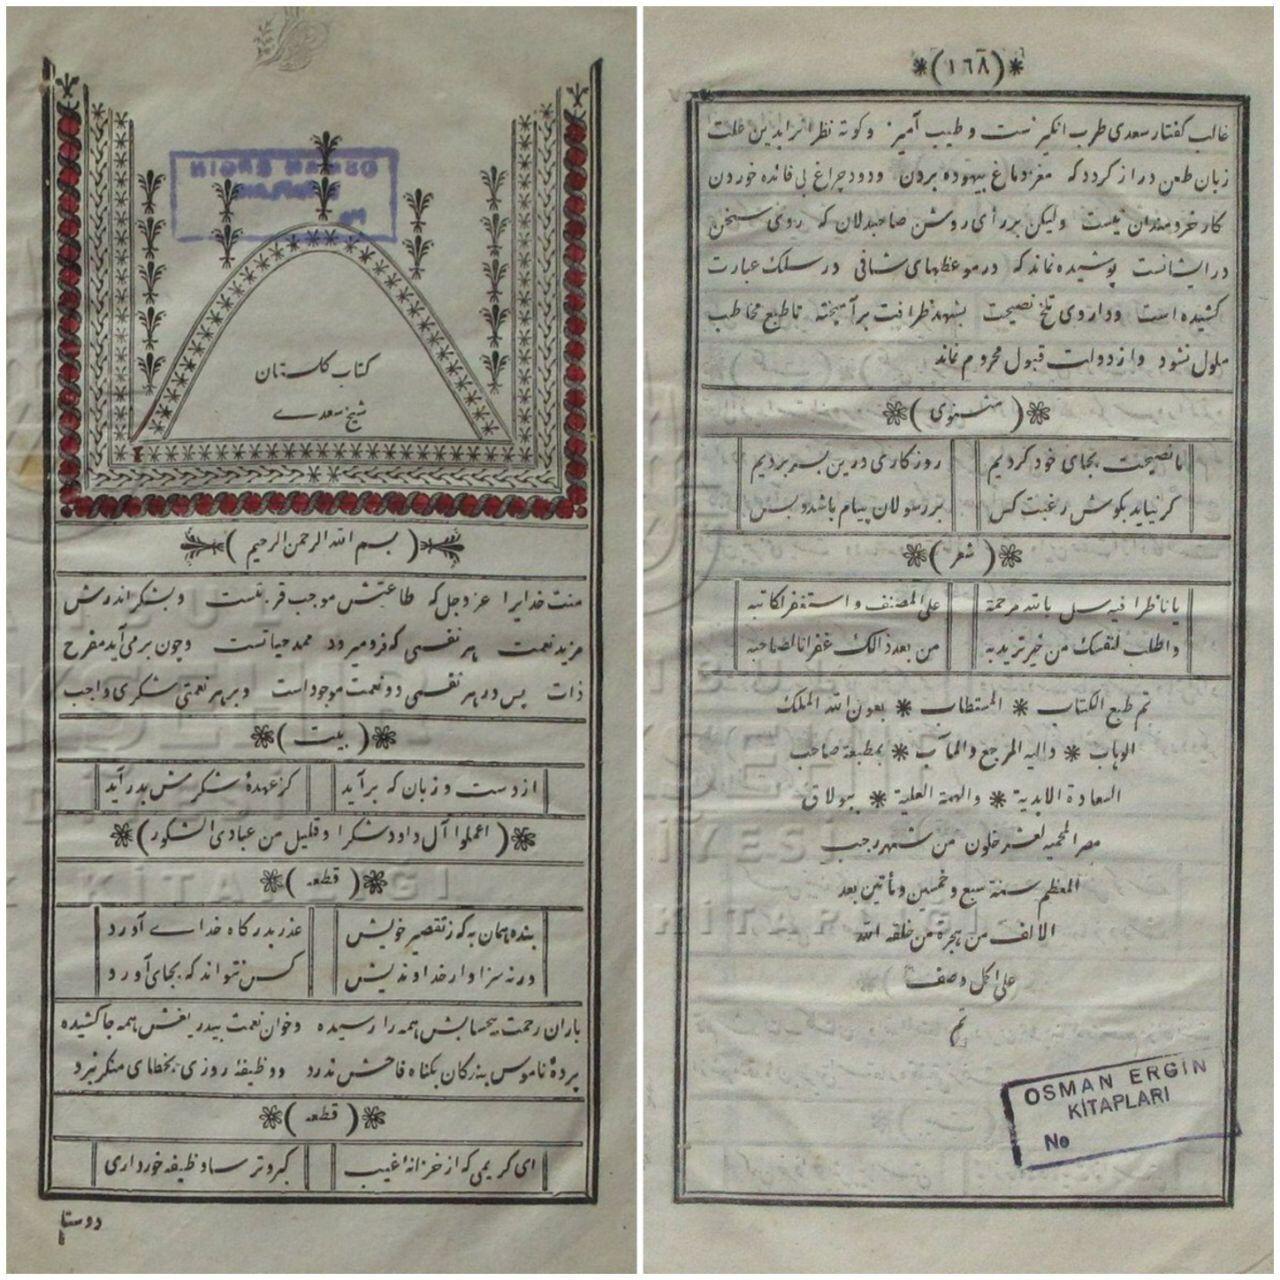 كتاب كلستان
شيخ سعدى
(بسم الله الرحمن الرحيم)
منت خدايرا عز و جل كه طاعتش موجب قربتست و بشكر اندرش
مزيد نعمت هر نفسى كه فرو ميرود ممد حياتست و چون بر مى آيد مفرح
ذات پس در هر نفسى دو نعمت موجود است و بر هر نعمتى شكرى واجب
(بيت)
از دست و زبان كه بر آيد كز عهدهٔ شكرش بدر آيد
(اعملوا آل داود شكرا و قليل من عبادى الشكور)
(قطعه)
بنده همان به كه ز تقصير خويش عذر بدر كاه خداى آورد
ورنه سزاوار خداونديش كس نتواند كه بجاى آورد
باران رحمت بيحسابش همه را رسيده و خوان نعمت بيدريغش همه جا كشيده
پردهٔ ناموس بندكان بكناه فاحش ندرد و وظيفهٔ روزى بخطاى منكر نبرد
(قطعه)
اى كريمى كه از خزانهٔ غيب كبر و ترسا وظيفه خور دارى
دوستا
(١٦٨)
غالب كفتار سعدى طرب انكيزست و طيب آميز و كوته نظرانرا بدين علت
زبان طعن دراز كردد كه مغز دماغ بيهوده بردن و دود چراغ بى فائده خوردن
كار خردمندان نيست وليكن بر رأى روشن صاحبدلان كه روى سخن
در ايشانست پوشيده نماند كه در موعظهاى شافى در سلك عبارت
كشيده است و داروى تلخ نصيحت بشهد ظرافت بر آميخته تا طبع مخاطب
ملول نشود و از دولت قبول محروم نماند
(مثنوى)
ما نصيحت بجاى خود كرديم روزكارى درين بسر برديم
كر نيايد بكوش رغبت كس بر رسولان پيام باشد و بس
(شعر)
يا ناظرا فيه سل بالله مرحمة على المصنف و استغفر لكاتبه
و اطلب لنفسك من خير تريد به من بعد ذالك غفرانا لصاحبه
تم طبع الكتاب * المستطاب * بعون الله الملك
الوهاب * واليه المرجع والمآب * بمطبعة صاحب
السعادة الابدية * والهمة العلية * ببولاق
مصر المحميه لعشر خلون من شهر رجب
المعظم سنة سبع و خمسين و مأتين بعد
الالف من هجرة من خلقه الله
على اكمل وصف
تم
OSMAN ERGİN
KİTAPLARI
No